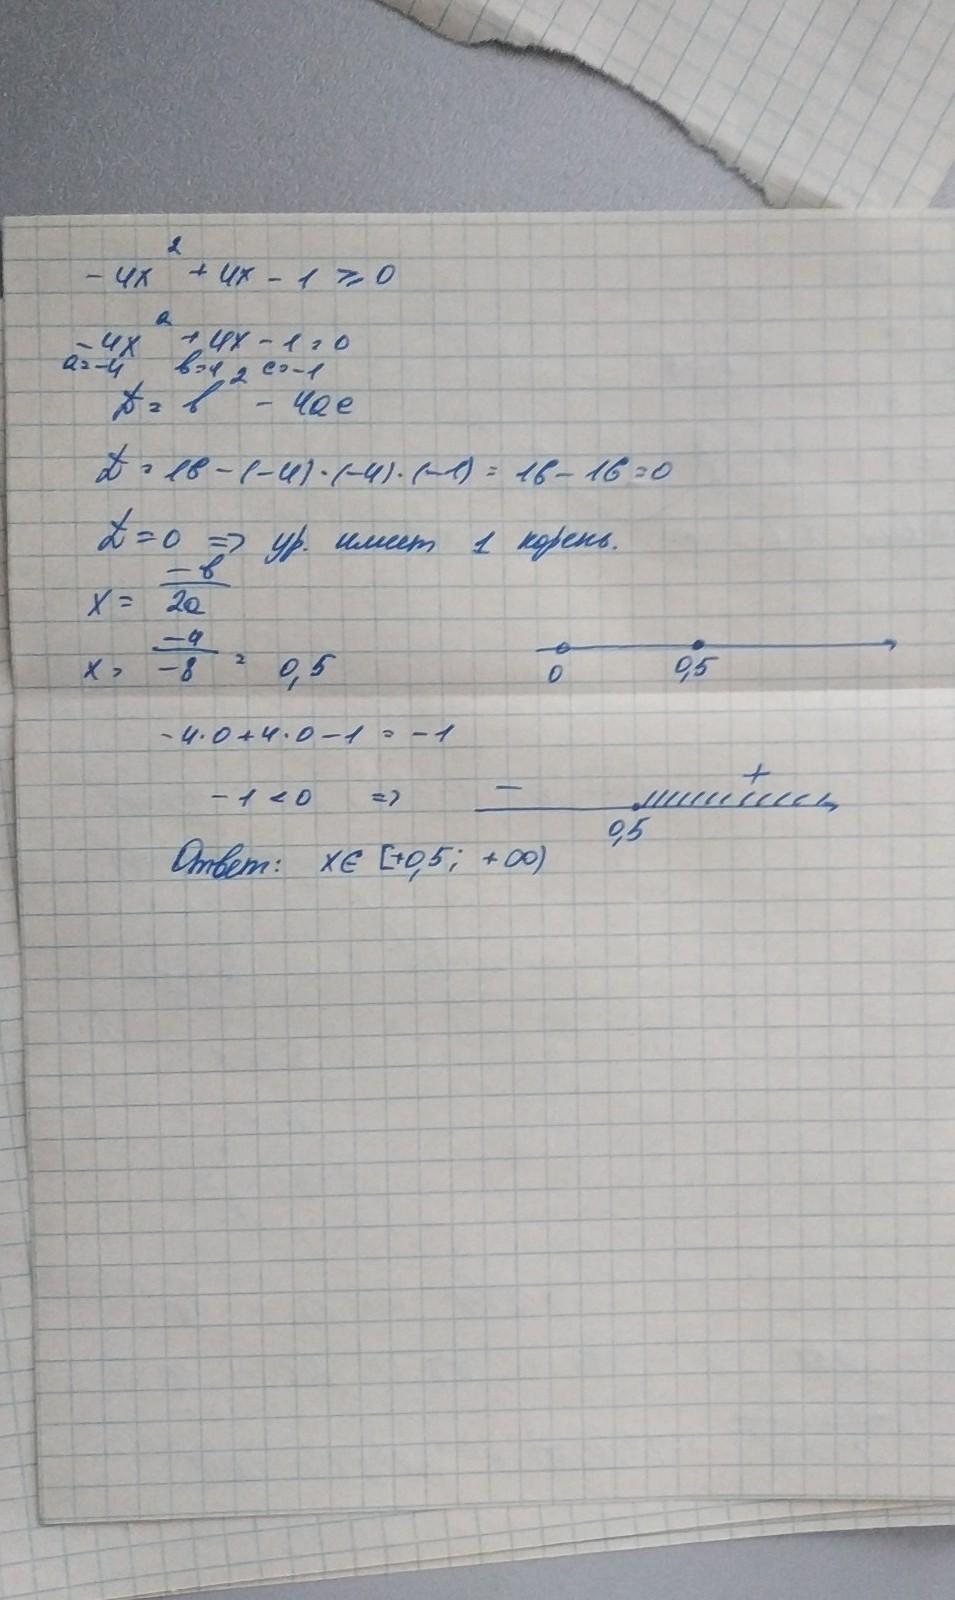 -4x² + 4x - 1 ≥ 0
-4x² + 4x - 1 = 0
a=-4 в=4 c=-1
D = в² - 4ac
D = 16 - (-4)·(-4)·(-1) = 16 - 16 = 0
D = 0 => ур. имеет 1 корень.
x = -в/2a
x = -4/-8 = 0,5
0 0,5
-4·0+4·0-1 = -1
-1 < 0 => - +
0,5
Ответ: x∈ [+0,5; +∞)